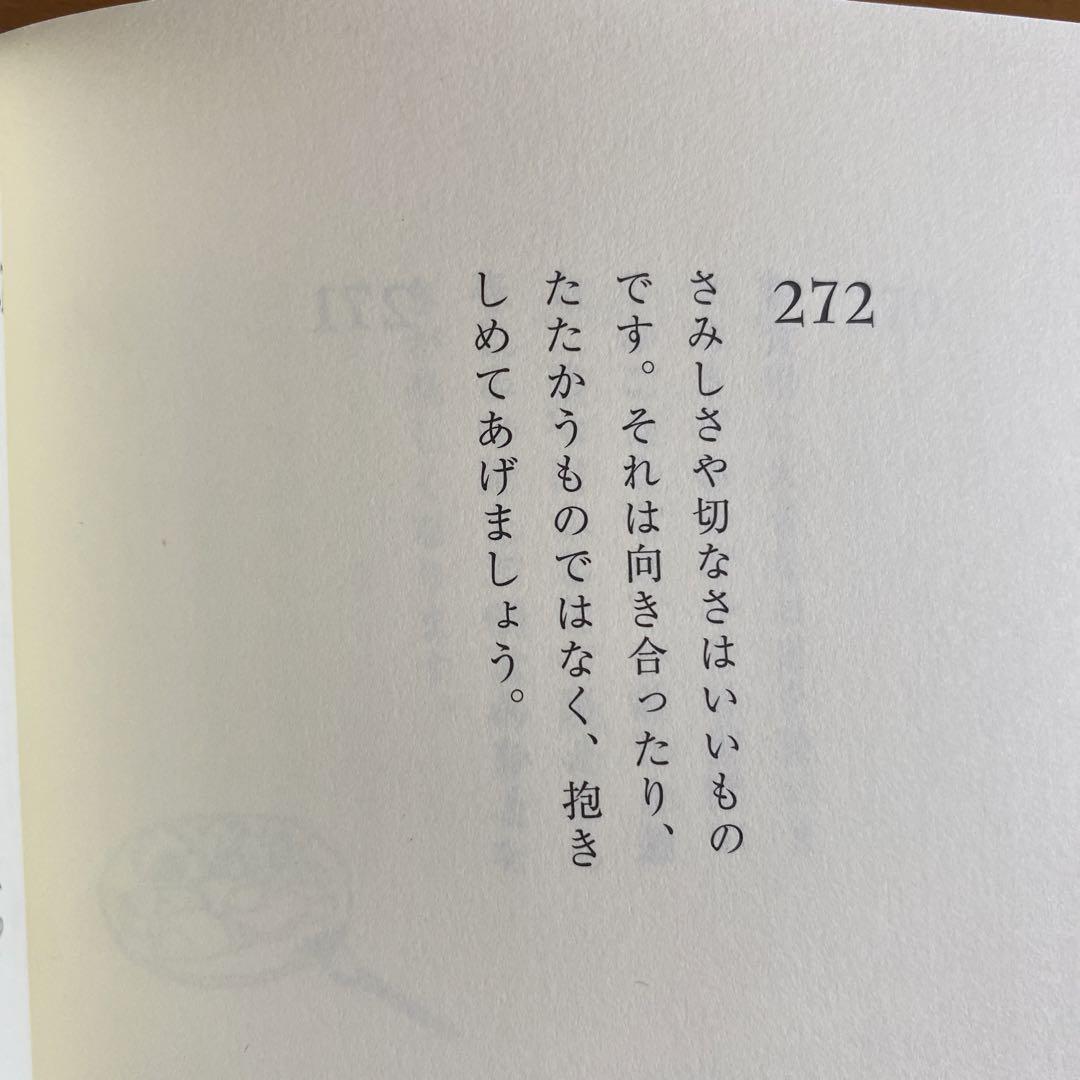 272
さみしさや切なさはいいもの
です。それは向き合ったり、
たたかうものではなく、抱き
しめてあげましょう。
271